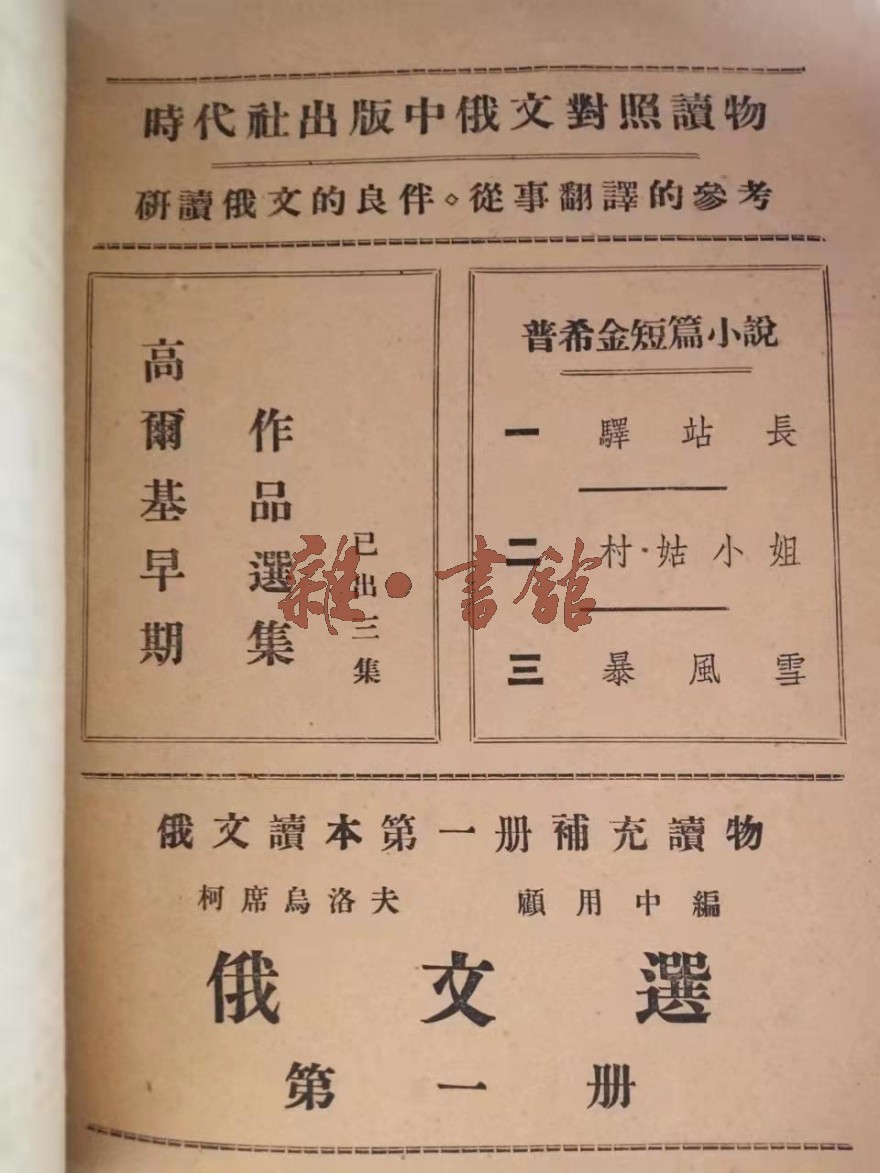 時代社出版中俄文對照讀物
研讀俄文的良伴。從事翻譯的參考
高爾基早期
作品選集
已出三集
普希金短篇小說
一 驛站長
二 村·姑小姐
三 暴風雪
雜·書館
俄文讀本第一册補充讀物
柯席烏洛夫 顧用中編
俄文選
第一册